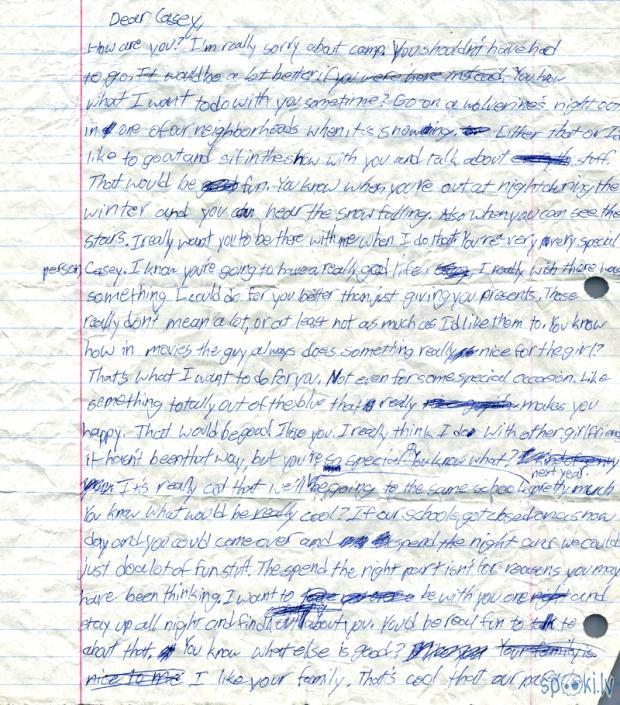 Dear Casey,
How are you? I'm really sorry about camp. You shouldn't have had
to go. It would be a lot better if you were here instead. You know
what I want to do with you sometime? Go on a wolverines night out
in one of our neighborhoods when it's snowing. Either that or I'd
like to go out and sit in the snow with you and talk about stuff.
That would be fun. You know when you're out at night during the
winter and you can hear the snow falling. Also when you can see the
stars. I really want you to be there with me when I do that. You're very very special
person Casey. I know you're going to have a really good life. I really wish there was
something I could do for you better than just giving you presents. Those
really don't mean a lot, or at least not as much as I'd like them to. You know
how in movies the guy always does something really nice for the girl?
That's what I want to do for you. Not even for some special occasion. Like
something totally out of the blue that really makes you
happy. That would be good. I love you. I really think I do. With other girlfriend
it hasn't been that way, but you're so special. You know what?
next year.
It's really cool that we'll be going to the same school pretty much
You know what would be really cool? If our schools got closed on a snow
day and you could come over and spend the night and we could
just do a lot of fun stuff. The spend the night part isn't for reasons you may
have been thinking. I want to be with you one and
stay up all night and find out about you. You'd be real fun to talk to
about that. You know what else is good? Your family is
nice to me I like your family. That's cool that our
spooki.lv